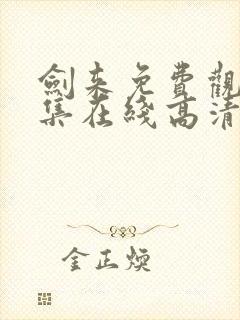 劍來免費觀
集在綫高清
金正焕